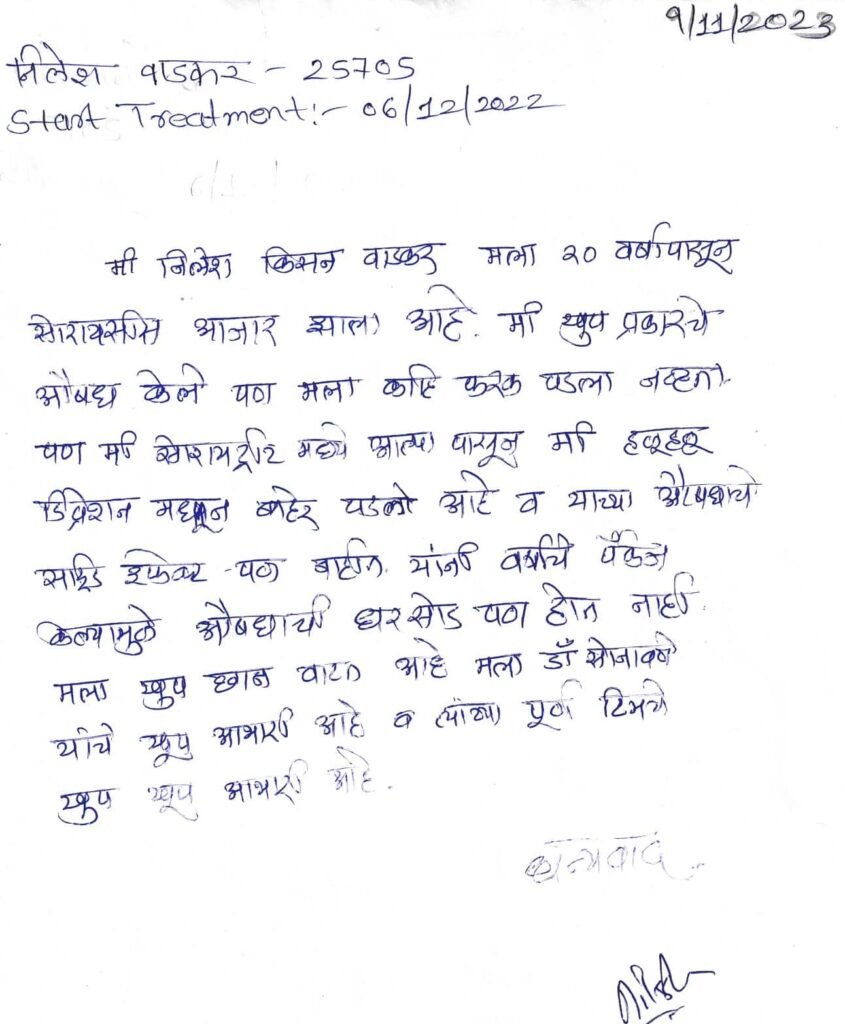 9/11/2023
निलेश वाडकर - 25705
Start Treatment:- 06/12/2022
मी निलेश किसन वाडकर मला २० वर्षापासून
सोरायसीस आजार झाला आहे. मी खुप प्रकारचे
औषध केले पण मला काहि फरक पडला नव्हता.
पण मी मध्ये आल्या पासून मी हळूहळू
डिप्रेशन मधून बाहेर पडलो आहे व याच्या औषधाचे
साईड इफेक्ट पण नाहीत. यांनी वर्षाचे पॅकेज
केल्यामुळे औषधाची धरसोड पण होत नाही.
मला खुप छान वाटत आहे मला डॉ सोजावर्ष
यांचे खूप आभारी आहे व त्यांच्या पूर्ण टिमचे
खुप खूप आभारी आहे.
धन्यवाद